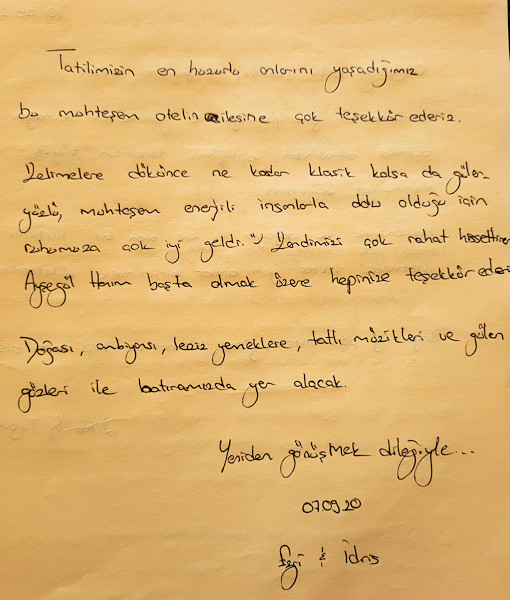 Tatilimizin en huzurlu anlarını yaşadığımız
bu muhteşem otelin ailesine çok teşekkür ederiz.
Kelimelere dökünce ne kadar klasik kalsa da güler
yüzlü, muhteşem enerjili insanlarla dolu olduğu için
ruhumuza çok iyi geldi. Kendimizi çok rahat hissettiren
Ayşegül Hanım başta olmak üzere hepinize teşekkür ederi
Doğası, ambiyansı, leziz yemeklere, tatlı müzikleri ve gülen
gözleri ile hatıramızda yer alacak.
Yeniden görüşmek dileğiyle...
070920
& İdris